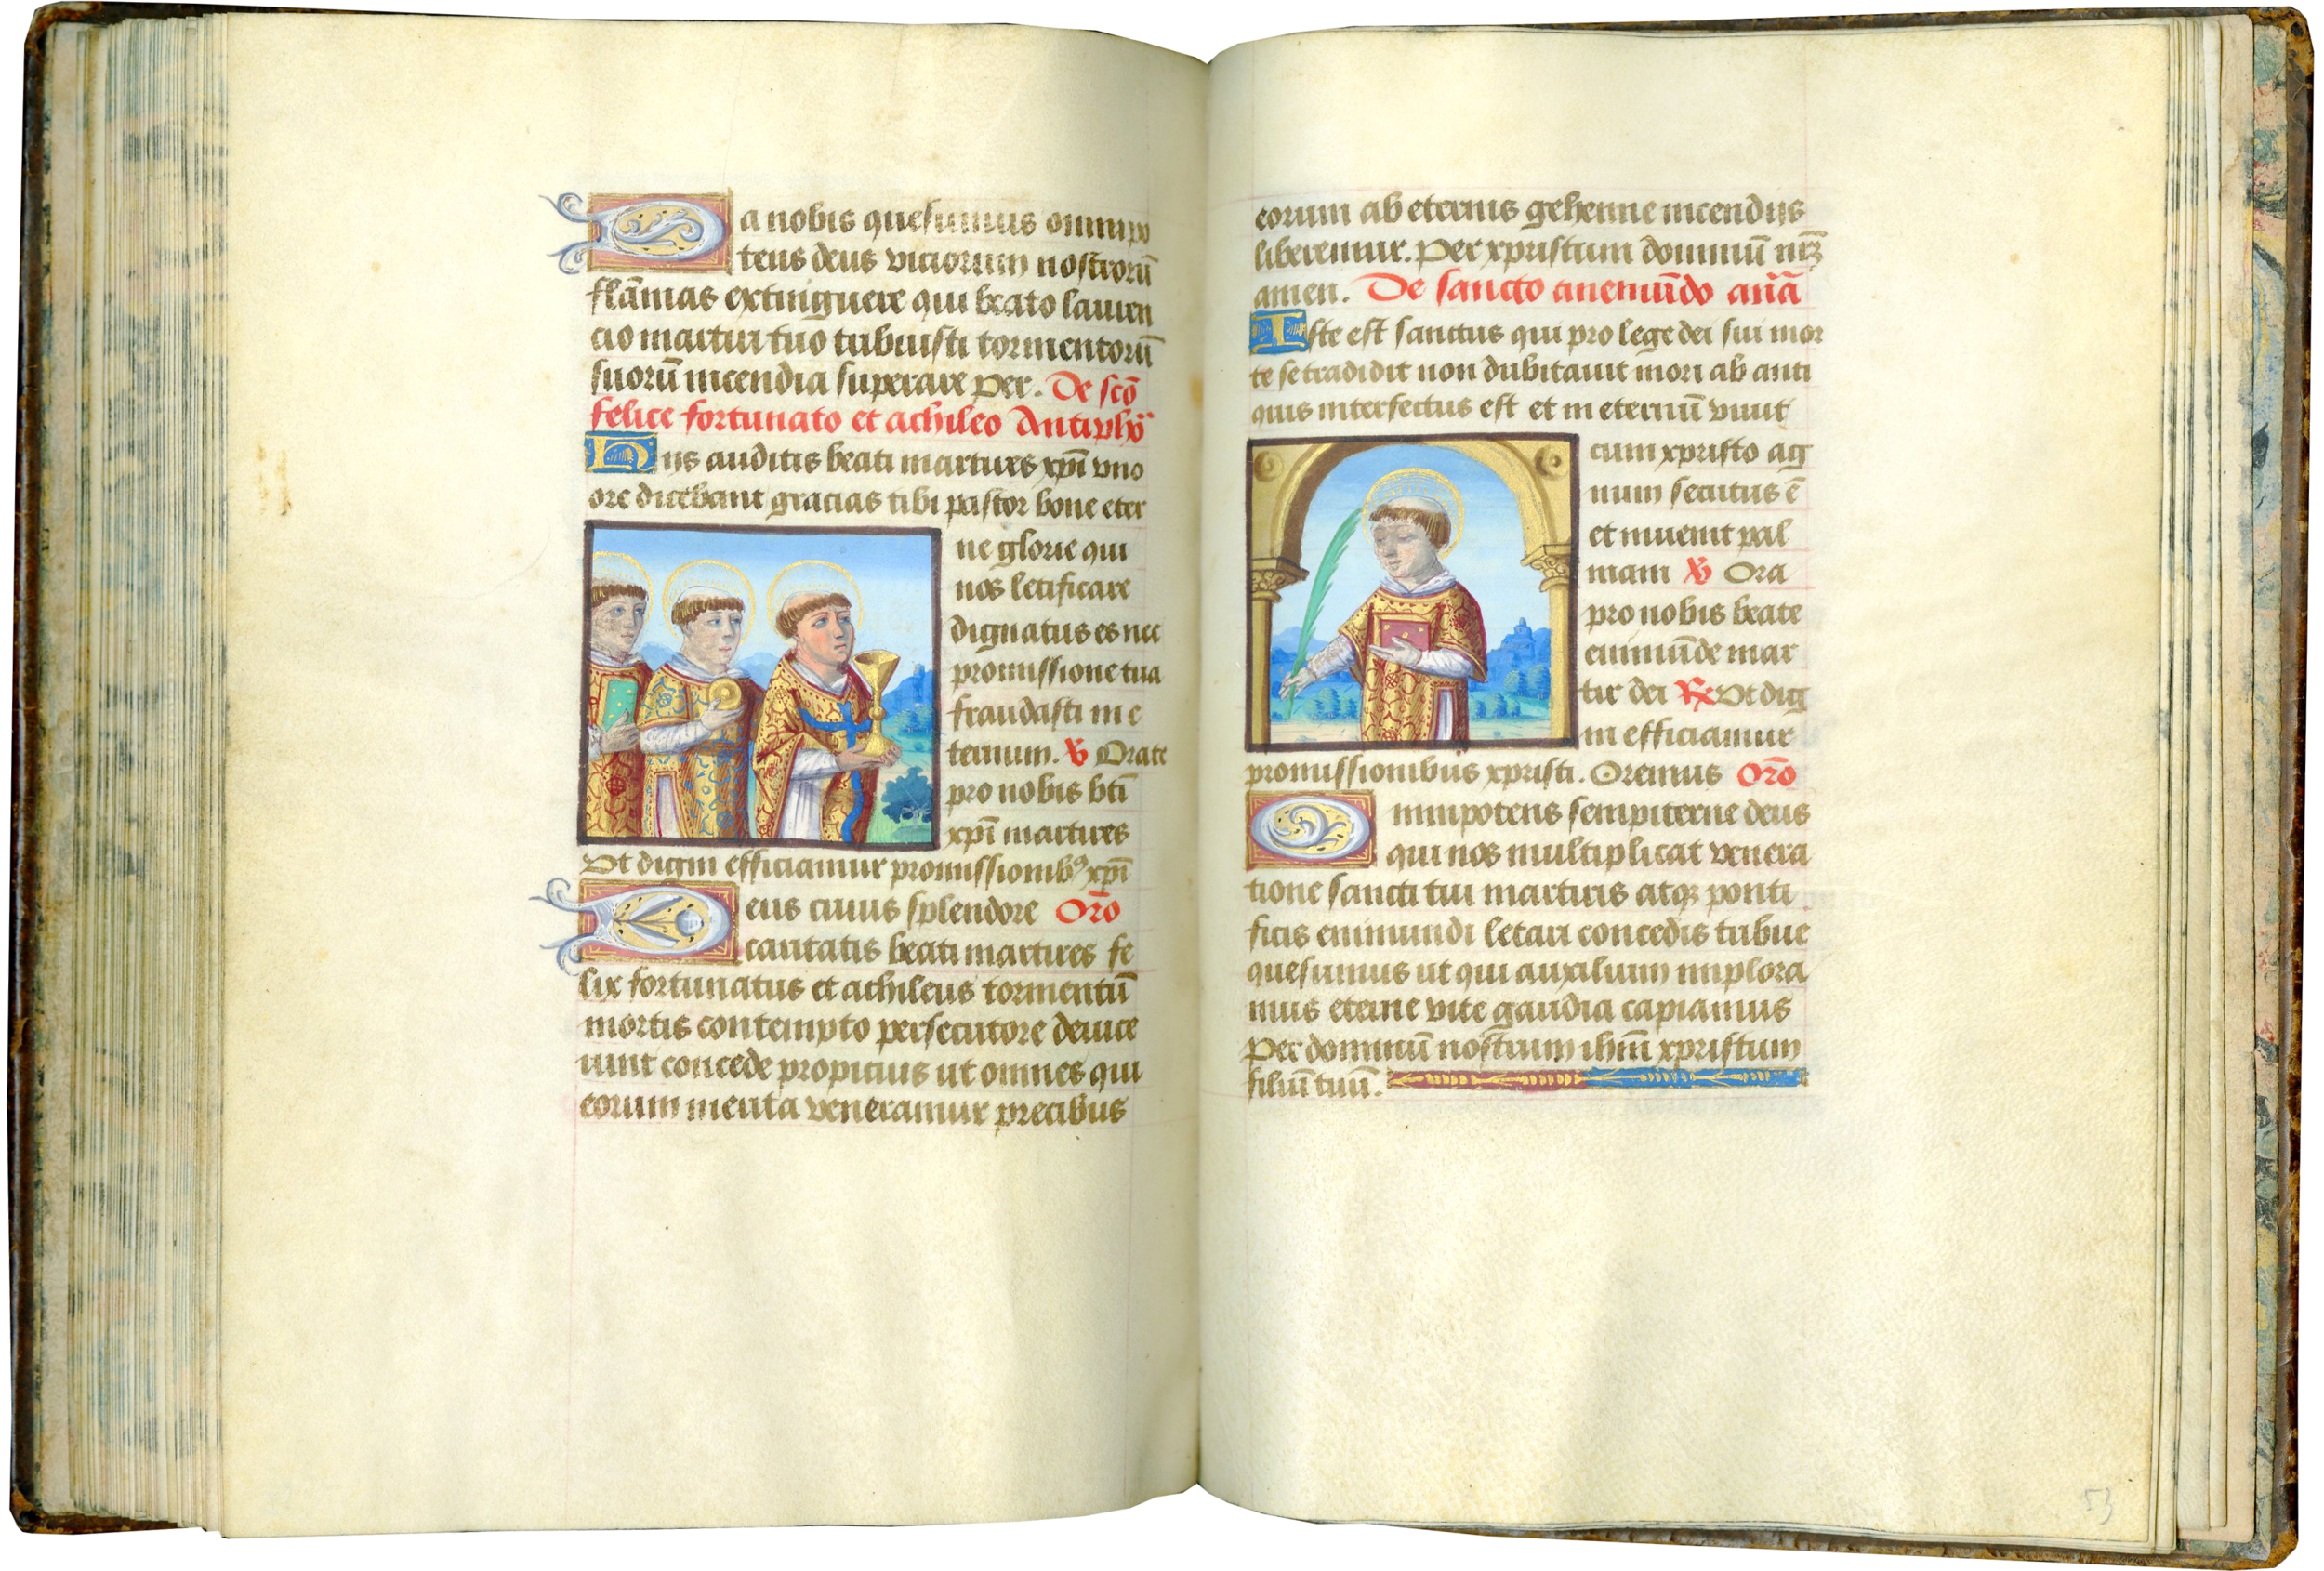 Da nobis quesumus omnipo
tens deus viciorum nostrorū
flāmas extinguere qui beato lauren
cio martiri tuo tribuisti tormentorū
suorū incendia superare per. De scō
felice fortunato et achileo Antiphō
Hiis auditis beati martires xp̄i vno
ore dicebant gracias tibi pastor bone eter
ne glorie qui
nos letificare
dignatus es nec
promissione tua
fraudasti in e
ternum. ꝟ Orate
pro nobis bt̄i
xp̄i martires
Vt digni efficiamur promissionibꝰ xp̄i
Deus cuius splendore Orō
caritatis beati martires fe
lix fortunatus et achileus tormentū
mortis contempto persecutore deuice
runt concede propicius ut omnes qui
eorum merita veneramur precibus
eorum ab eternis gehenne incendiis
liberemur. Per xpristum dominū nr̄ȝ
amen. De sancto anemūdo an̄a
Iste est sanctus qui pro lege dei sui mor
te se tradidit non dubitauit mori ab anti
quis interfectus est et in eternū viuit
cum xpristo ag
num secutus ē
et inuenit pal
mam ꝟ Ora
pro nobis beate
enimūde mar
tir dei ℞ Vt dig
ni efficiamur
promissionibus xpristi. Oremus Orō
Omnipotens sempiterne deus
qui nos multiplicat venera
tione sancti tui martiris atqꝫ ponti
ficis enimundi letari concedis tribue
quesumus ut qui auxilium implora
mus eterne vite gaudia capiamus
Per dominū nostrum ihm̄ xpristum
filiū tuū.
53